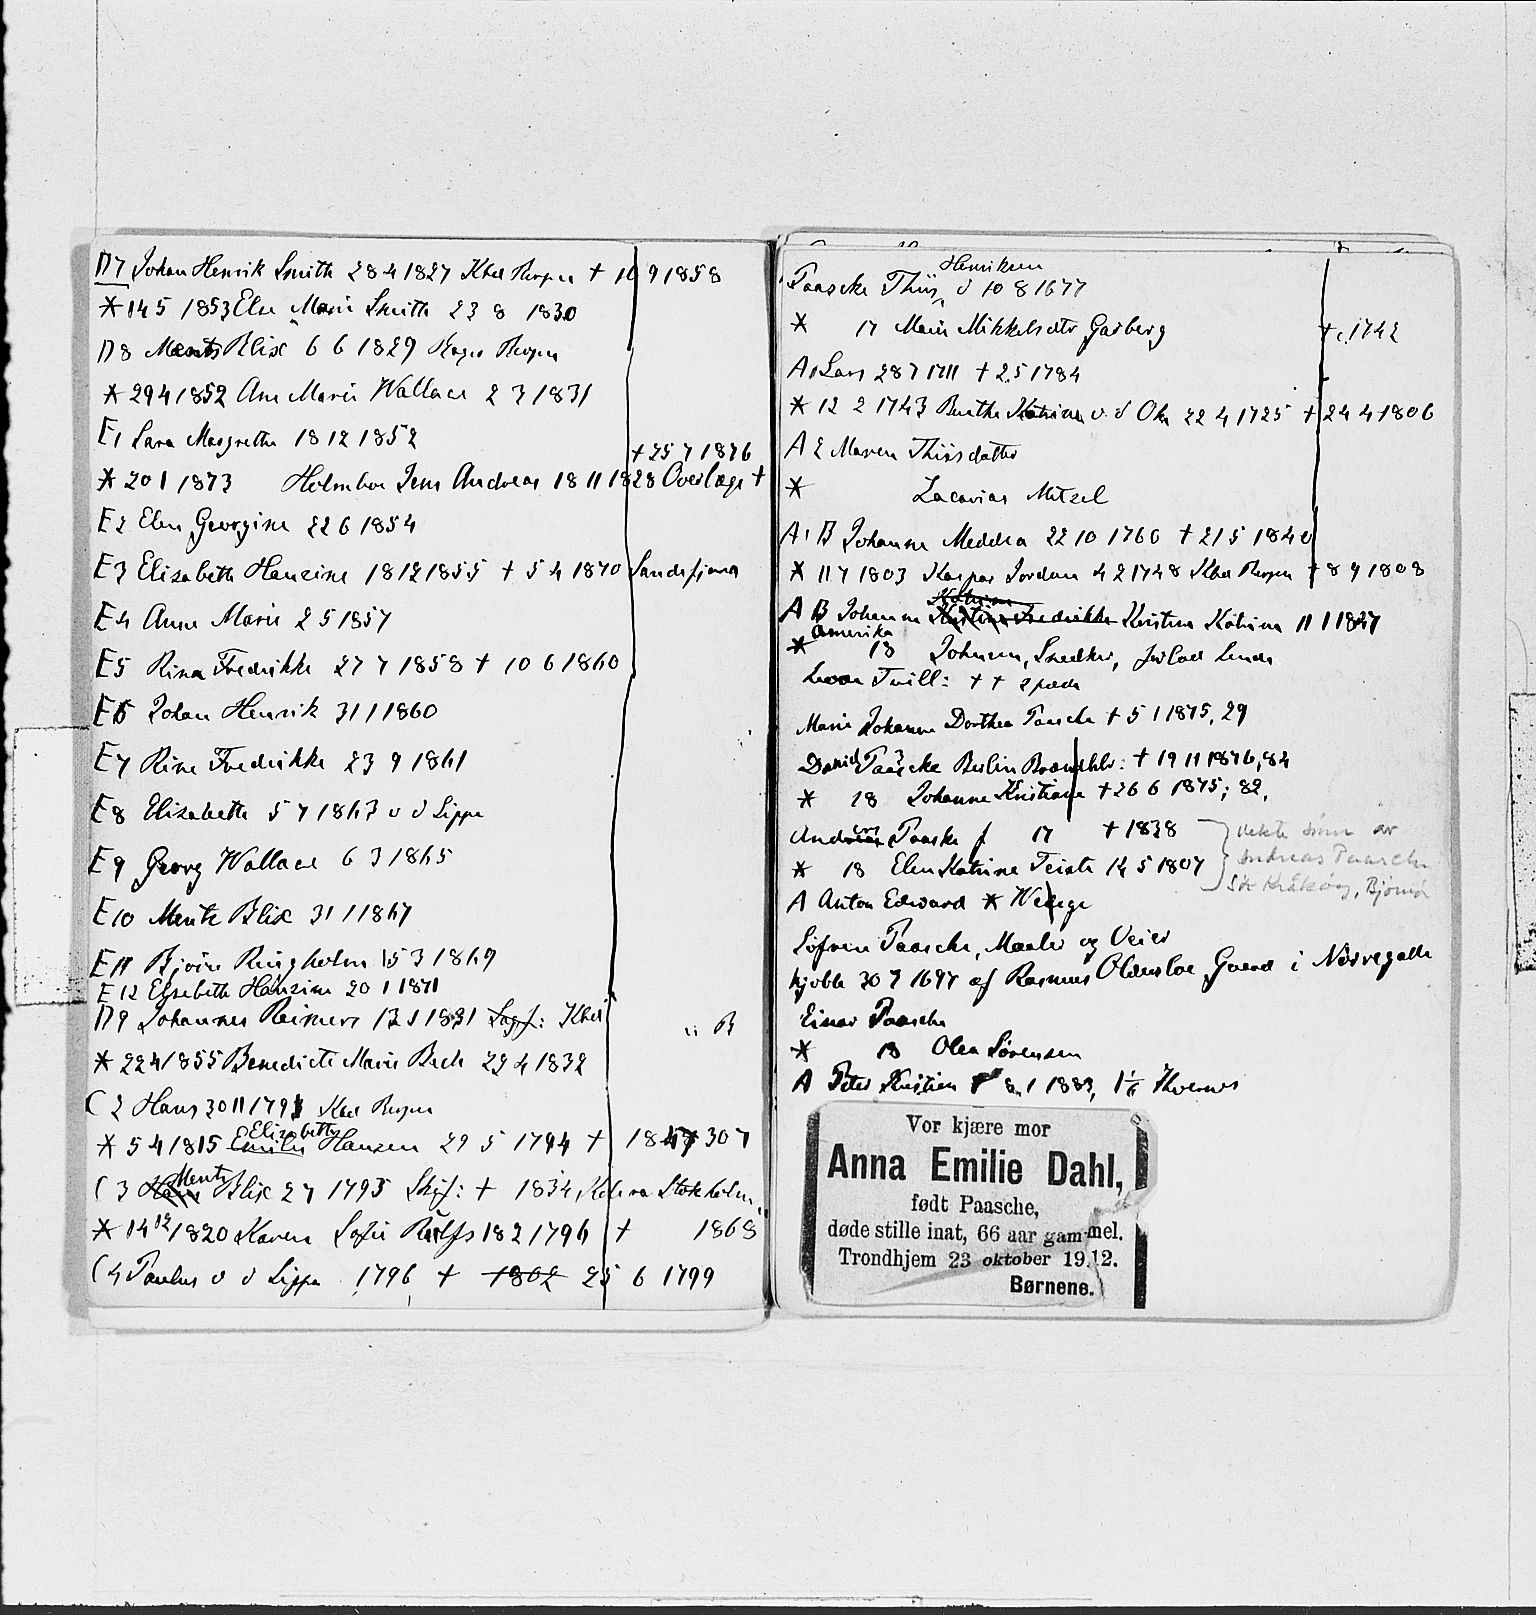 D7 Johan Henrik Smith 28 4 1827 Kbd Bergen + 10 9 1858
* 14 5 1853 Else Marie Smith 23 8 1830
D8 Mentz Blix 6 6 1829 Bergen
* 29 4 1852 Ane Marie Wallace 2 3 1831
E1 Sara Margrethe 18 12 1852
+ 25 7 1876
* 20 1 1873 Holmboe Jens Andreas 18 11 1828 Overlæge +
E2 Elen Georgine 22 6 1854
E3 Elisabeth Hansine 18 12 1855 + 5 4 1870 Sandefjord
E4 Anne Marie 2 5 1857
E5 Rina Fredrikke 27 7 1858 + 10 6 1860
E6 Johan Henrik 31 1 1860
E7 Rine Fredrikke 23 9 1861
E8 Elisabeth 5 7 1863 v d Lippe
E9 Georg Wallace 6 3 1865
E10 Mentz Blix 31 1 1867
E11 Bjørn Ringholm 15 3 1869
E12 Elisabeth Hansine 20 1 1871
D9 Johannes Reimers 13 1 1831 Sagf: Kbd i B
* 22 4 1855 Benedicte Marie Bech 29 4 1832
C2 Hans 30 11 1791 Kbd Bergen
Elisabeth
* 5 4 1815 Emilie Hansen 29 5 1794 + 1847 30 7
Mentz
C3 Hans Blix 2 7 1793 Skif: + 1834 Kolera Stokholm
* 14 12 1820 Karen Sofie Rolfs 18 2 1796 + 1868
C4 Paulus v d Lippe 1796 + 1802 25 6 1799
Henriksen
Paasche Thiis d 10 8 1677
* 17 Maren Mikkelsdtr Garberg + c. 1742
A1 Lars 28 7 1711 + 2 5 1784
* 12 2 1743 Birthe Katrine v. d Ohe 22 4 1725 + 24 4 1806
A2 Maren Thiisdatter
* Zacarias Metzel
A1 B Johanne Meddea 22 10 1760 + 21 5 1840
* 11 7 1803 Kaspar Jordan 4 2 1748 Kbd Bergen + 8 9 1808
Katrine
A B Johanne Kristine Fredrikke Kristine Katrine 11 1 1847
Amerika
* 18 Johnsen, Snedker,
Tvill: + + spæde
Marie Johanne Dorthea Paasche + 5 1 1875, 29
David Paasche Berlin Brændhlr: + 19 11 1876, 84
* 18 Johanne Kristiane + 26 6 1875; 82.
Andreas Paaske f 17 + 1838
* 18 Elen Katrine Teiste 14 5 1807
ekte sønn av
Andreas Paasche
A Anton Edward * Wenge
Søfren Paasche, Maaler og Veier
kjøbte 30 7 1697 af Rasmus Oldensloe Gaard i Norregade
Einar Paasche
* 18 Olea Sørensen
A Peter Kristian 8 1 1883,
Vor kjære mor
Anna Emilie Dahl,
født Paasche,
døde stille inat, 66 aar gammel.
Trondhjem 23 oktober 1912.
Børnene.